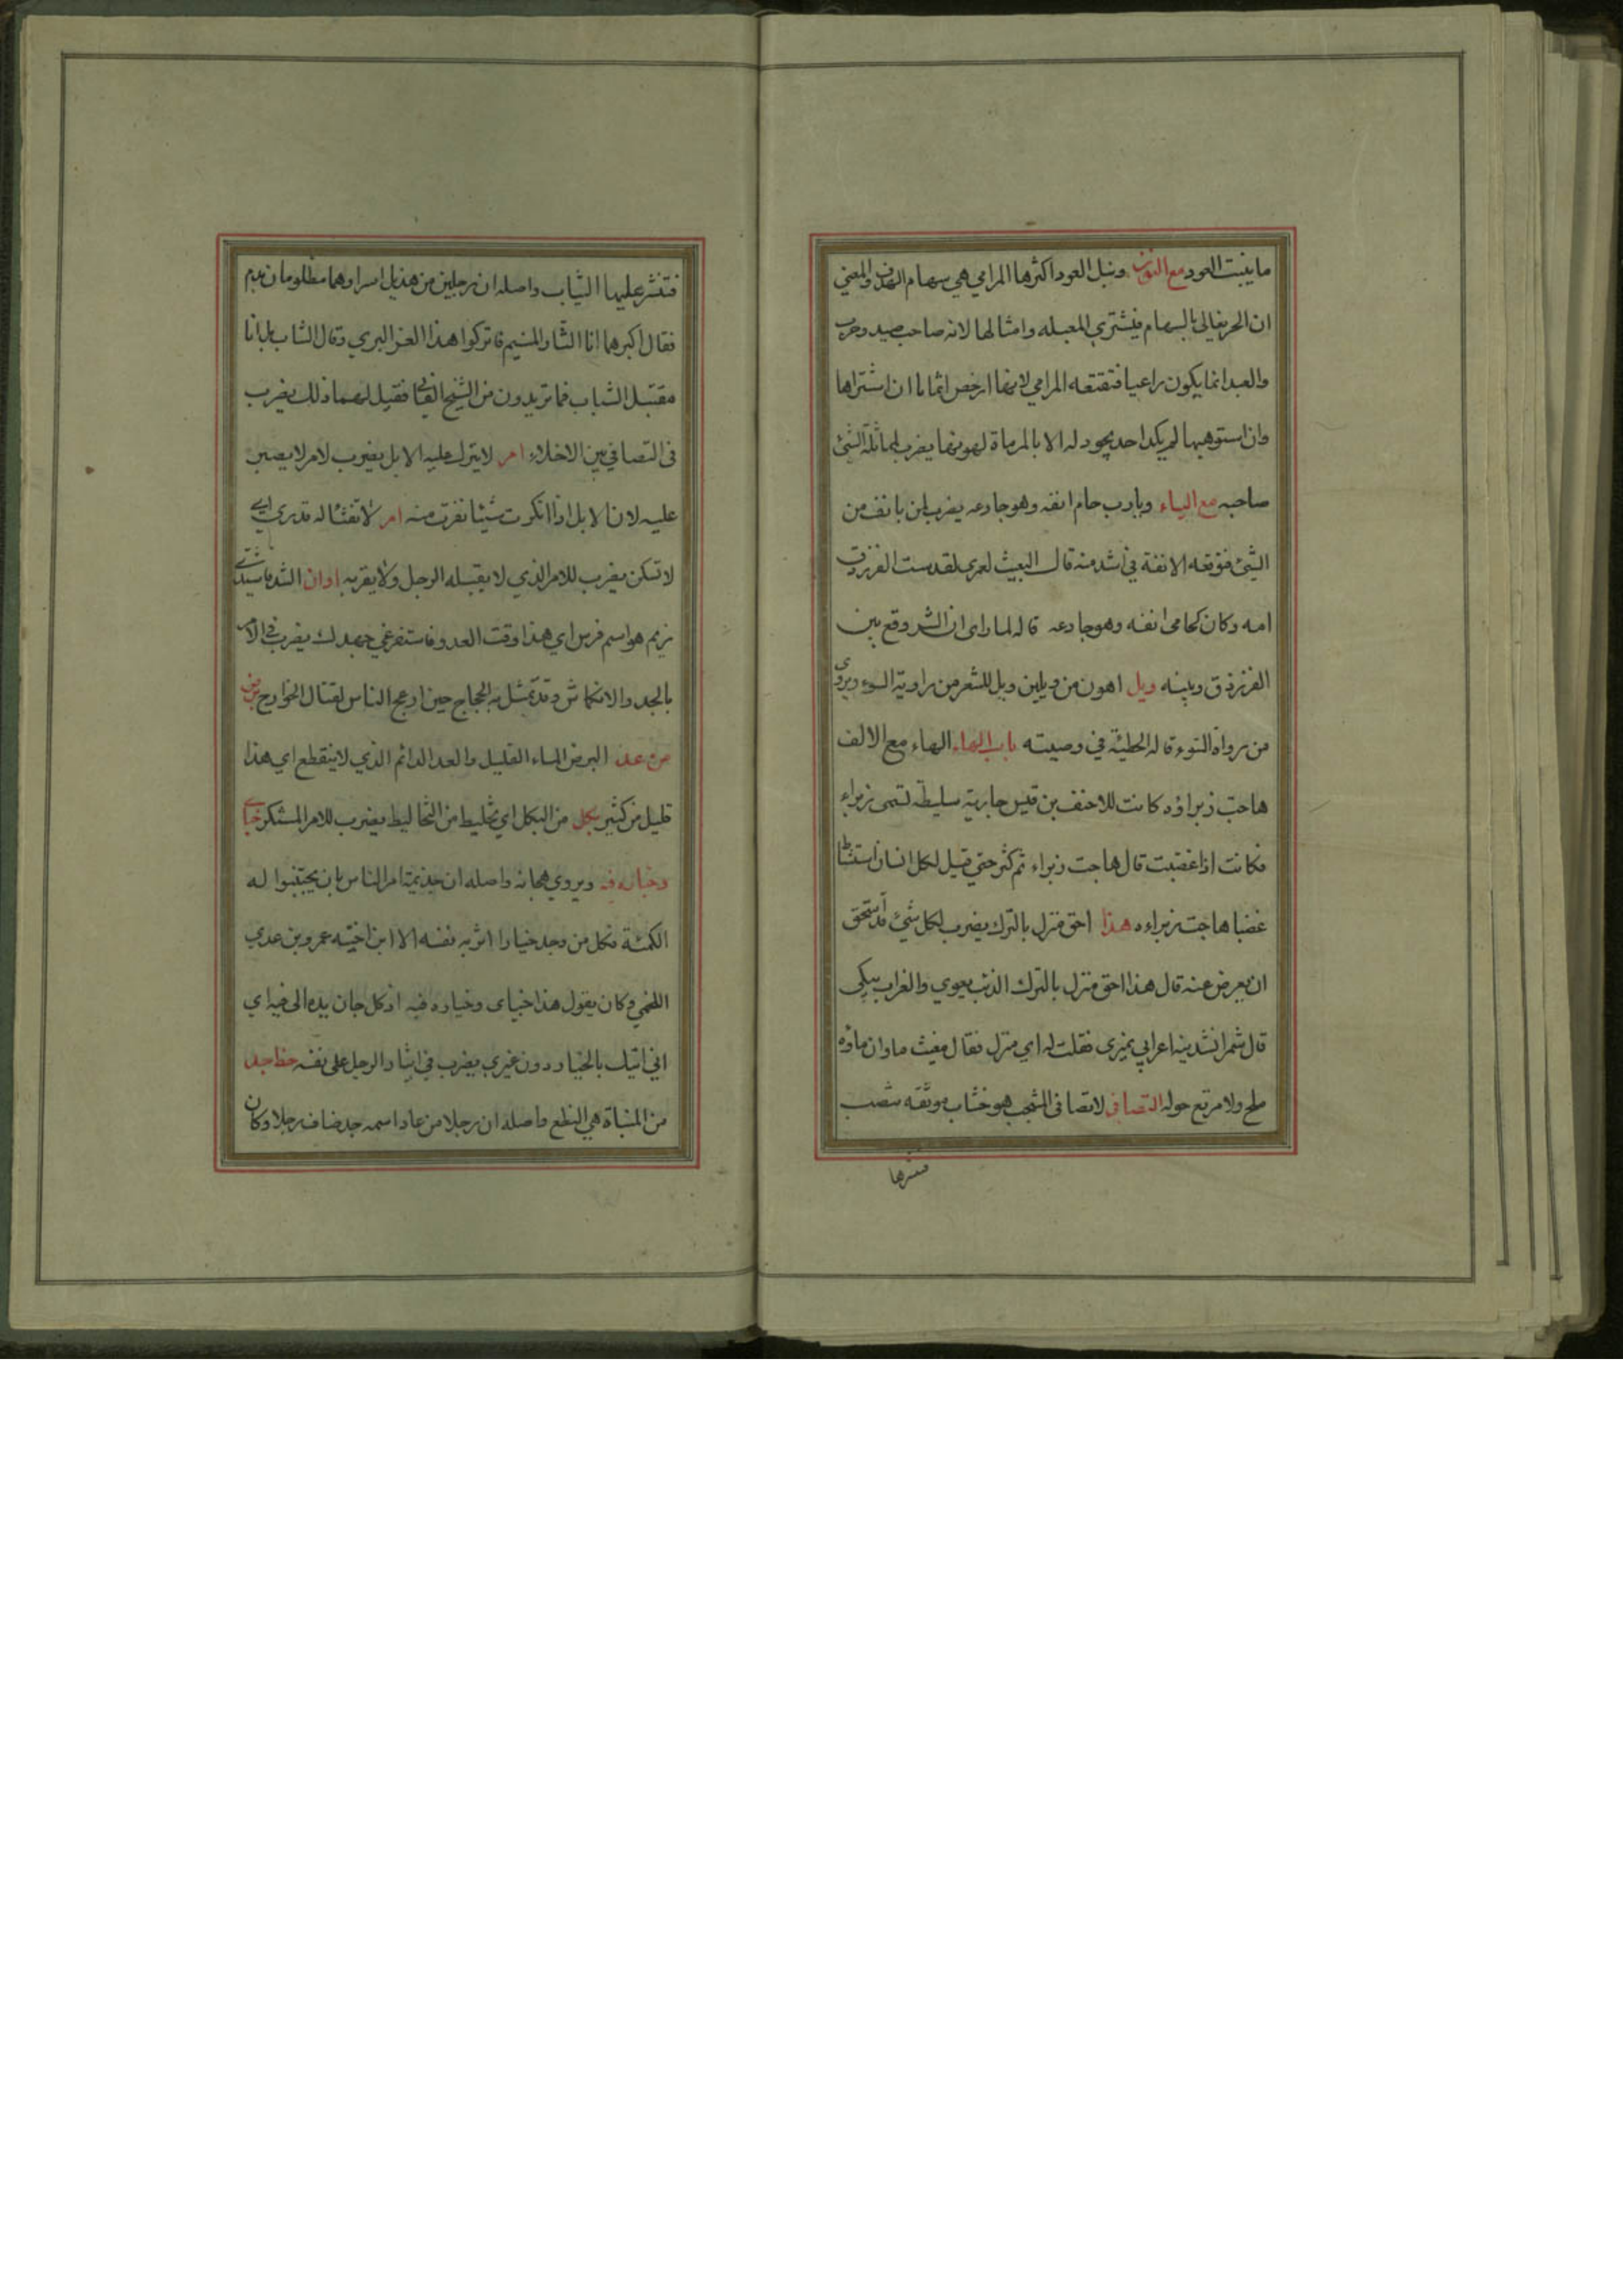 ما ينبت العود مع النون ونبل العود اكثرها المرامي هي سهام الهدف والمعني
ان الحر يغالى بالسهام فيشتري المعبله وامثالها لانه صاحب صيد وحرب
والعبد انما يكون راعيا فتقنعه المرامي لانها ارخص اثمانا ان اشتراها
وان استوهبها لم يكد احد يجود له الا بالمرماة لهونها يضرب لمماثلة الشئ
صاحبه مع الياء ويارب حام انفه وهو جادعه يضرب لمن يانف من
الشئ فوقعه الانفة في اشد منه قال البعيث لعمري لقد ست الفرزدق
امه وكان كحامى انفه وهو جادعه قاله لما راى ان الشر وقع بين
الفرزدق وبينه ويل اهون من ويلين ويل للشعر من راوية السوء ويروى
من رواة السوء قاله الحطيئة في وصيته باب الهاء الهاء مع الالف
هاجت زبراؤه كانت للاحنف بن قيس جارية سليطة تسمى زبراء
فكانت اذا غضبت قال هاجت زبراء ثم كثر حتي قيل لكل انسان استشاط
غضبا هاجت زبراءه هذا احق منزل بالترك يضرب لكل شئ قد استحق
ان يعرض عنه قال هذا احق منزل بالترك الذئب يعوي والغراب يبكى
قال شمر انشدينه اعرابي بميزى فقلت له اي منزل فقال مغيث ماوان ماؤه
ملح ولا مرتع حوله التصافي لا تصافى المشجب هو خشاب موثقه تنصب
فتنشر عليها الثياب واصله ان رجلين من هذيل اسرا وهما مظلومان بدم
فقال اكبرهما انا الثار المنيم فاتركوا هذا العز البري وقال الشاب بل انا
مقتبل الشباب فما تريدون من الشيخ الفاني فقيل لهما ذلك يضرب
فى التصافي بين الاخلاء امر لا يترك عليه الابل يضرب لامر لا يصبر
عليه لان الابل اذا انكرت شيئا نفرت منه امر لا تفثا له قدري اي
لا تسكن يضرب للامر الذي لا يقبله الرجل ولا يقربه اوان الشد فاشتدي
زيم هو اسم فرس اي هذا وقت العدو فاستفرغي جهدك يضرب في الامر
بالجد والانكماش وقد تمثل به الحجاج حين ازعج الناس لقتال الخوارج برض
من عد البرض الماء القليل والعد الدائم الذي لا ينقطع اي هذا
قليل من كثير بكل من البكل اي تخليط من التخاليط يضرب للامر المستنكر جناي
وخياره فيه ويروي هجانه واصله ان جذيمة امر الناس بان يجتنبوا له
الكمئة فكل من وجد خيارا اثر به نفسه الا ابن اخيته عمرو بن عدي
اللخمي وكان يقول هذا جناي وخياره فيه اذ كل جان يده الى فيه اي
اني اتيك بالخيار دون غيري يضرب في ايثار الرجل على نفسه حظ جد
من المشاة هي النطع واصله ان رجلا من عاد اسمه جد ضاف رجلا وكان